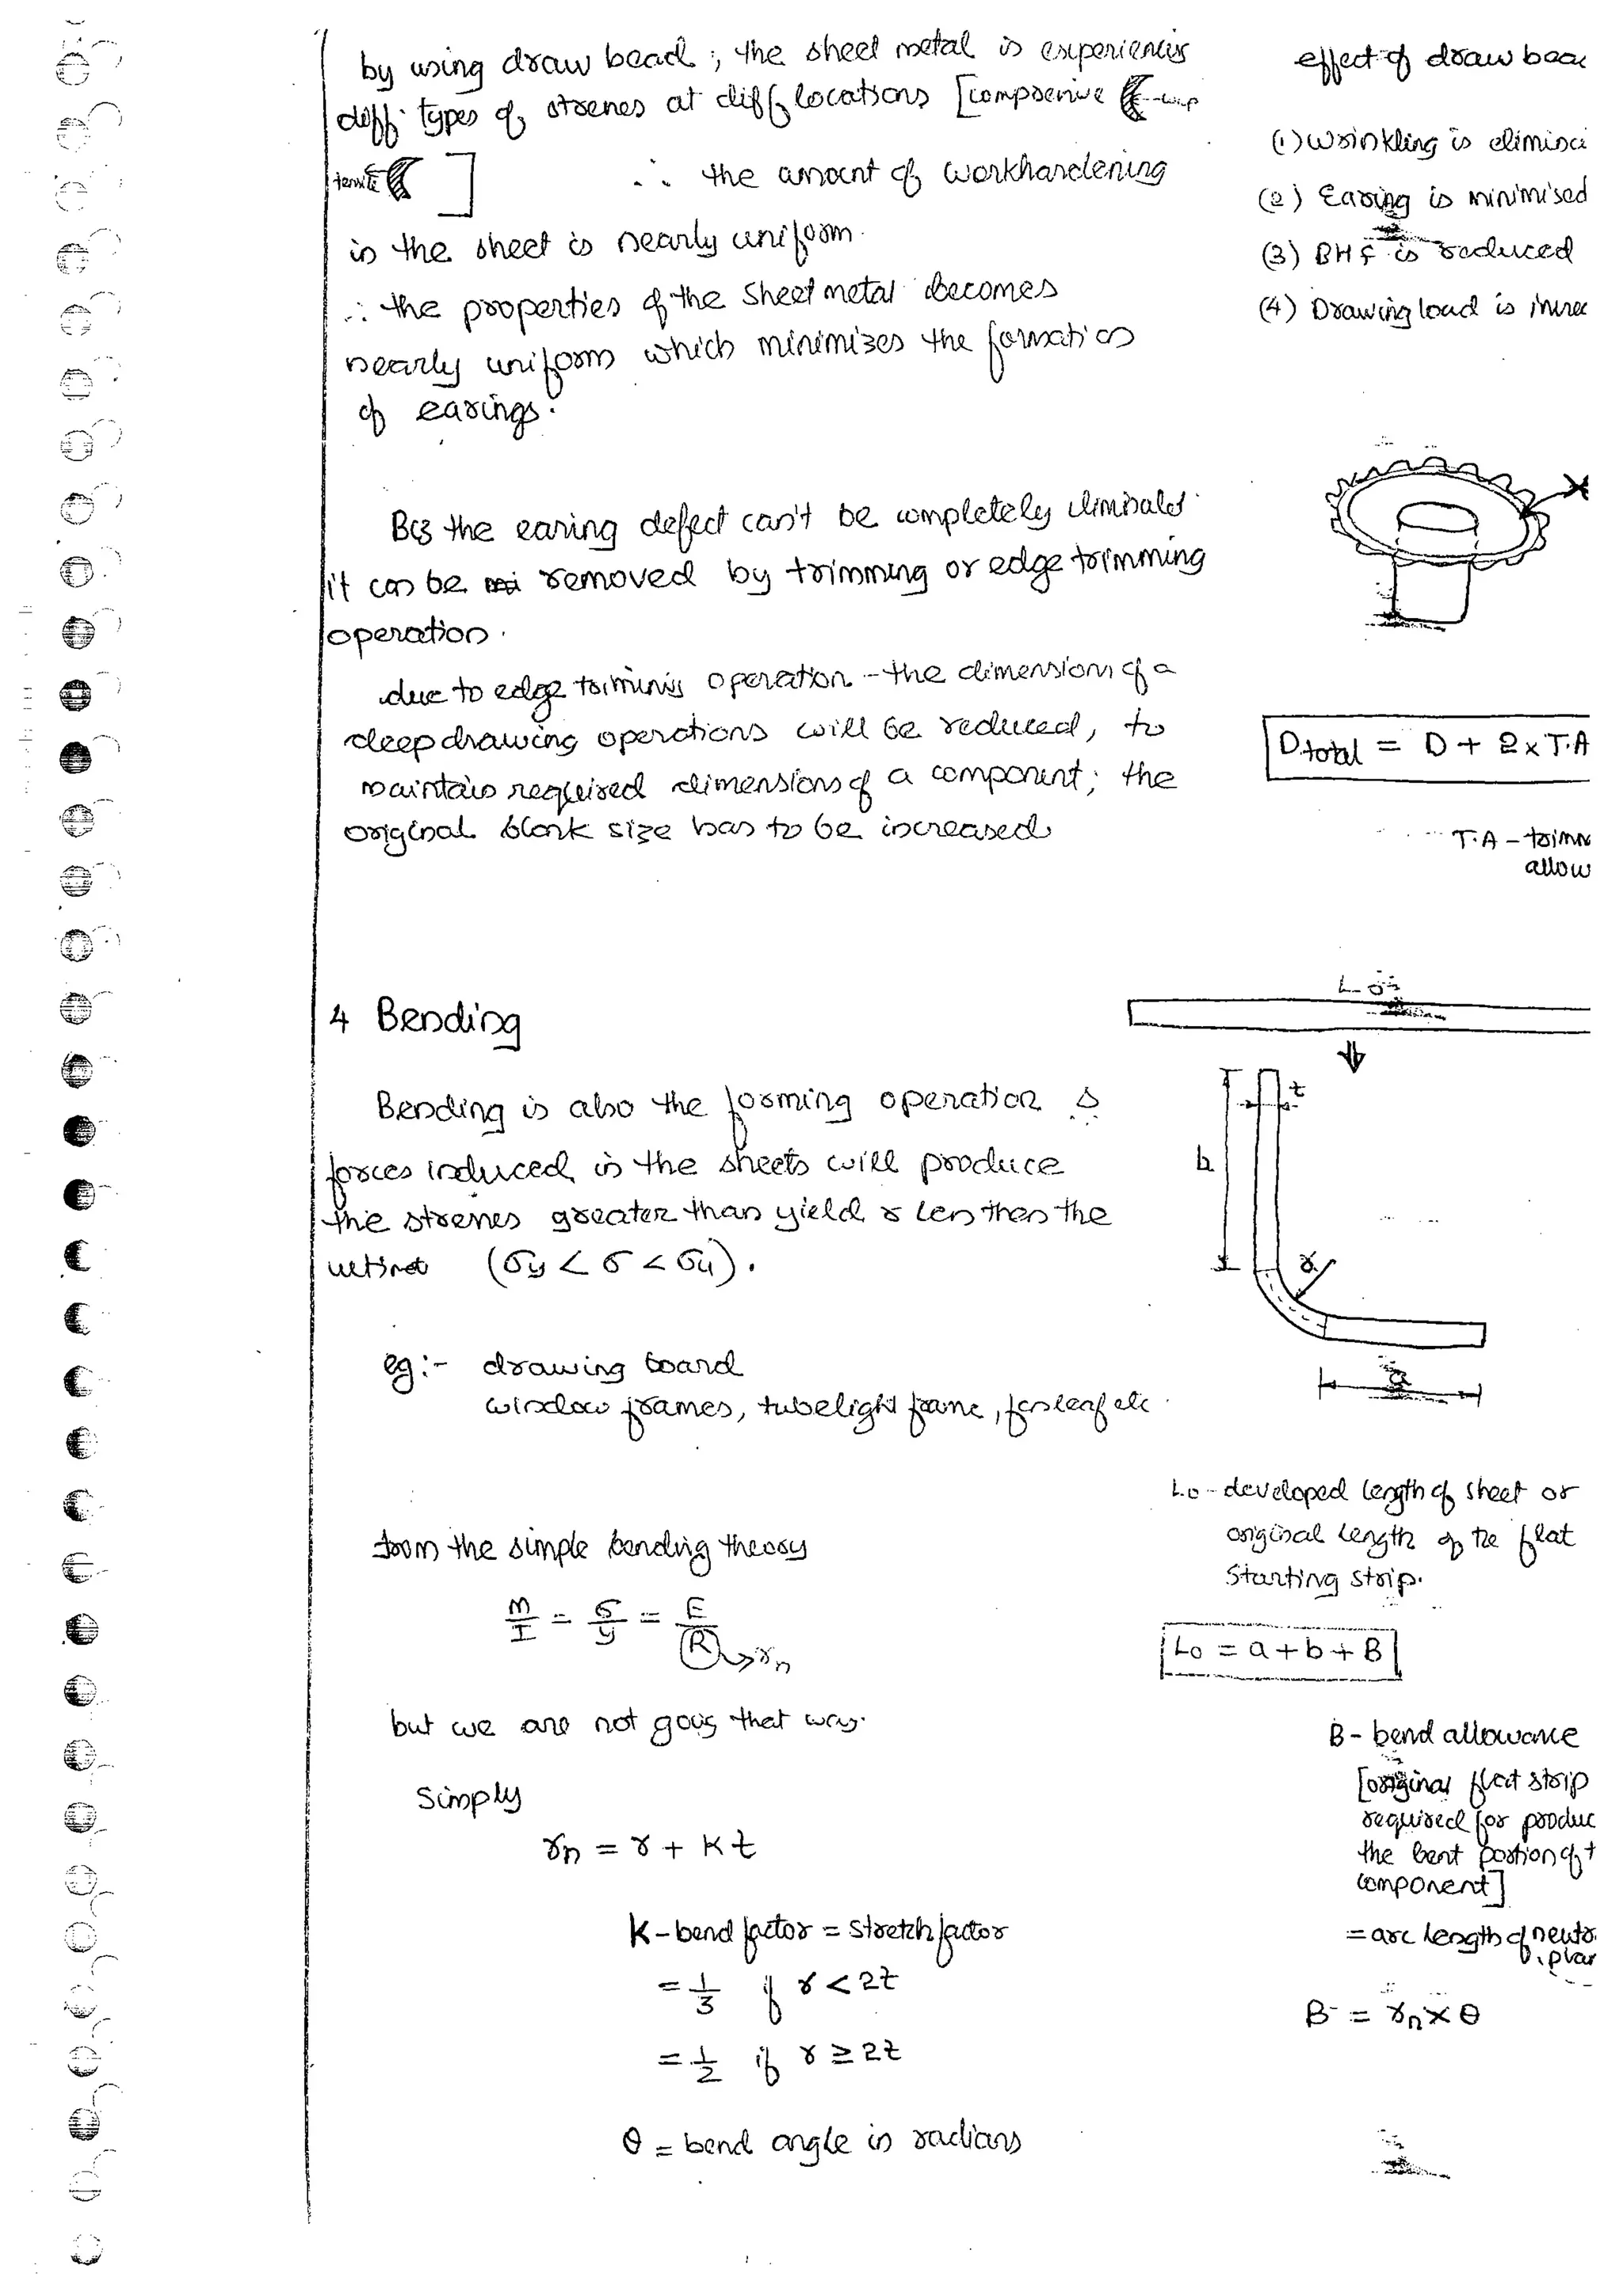 by using draw bead ; the sheet metal is experiencies
diff. types of stresses at diff locations [compressive
tensile ]
∴ the amount of workhardening
in the sheet is nearly uniform.
∴ the properties of the sheet metal becomes
nearly uniform which minimizes the formation
of earings.
effect of draw bea
(1) wrinkling is elimina
(2) Earing is minimised
(3) BHF is reduced
(4) Drawing load is increa
Bcz the earing defect can't be completely eliminated
it can be removed by trimming or edge trimming
operation.
due to edge trimming operation - the dimensions of a
deep drawing operations will be reduced, to
maintain required dimensions of a component; the
original blank size has to be increased
Dtotal = D + 2xT.A
T.A - trimm
allow
4 Bending
Bending is also the forming operation &
forces induced in the sheets will produce
the stresses greater than yield & less then the
ultimat (σy < σ < σu).
Lo
t
b
r
a
eg:- drawing board
window frames, tubelight frame, fan leaf etc.
Lo - developed length of sheet or
original length of the flat
starting strip.
from the simple bending theory
M/I = σ/y = E/R → rn
Lo = a + b + B
but we are not going that way.
B - bend allowance
[original flat strip
required for produc
the bent portion of t
component]
= arc length of neutr
plan
B = rn x θ
Simply
rn = r + Kt
K - bend factor = stretch factor
= 1/3 if r < 2t
= 1/2 if r ≥ 2t
θ = bend angle in radians